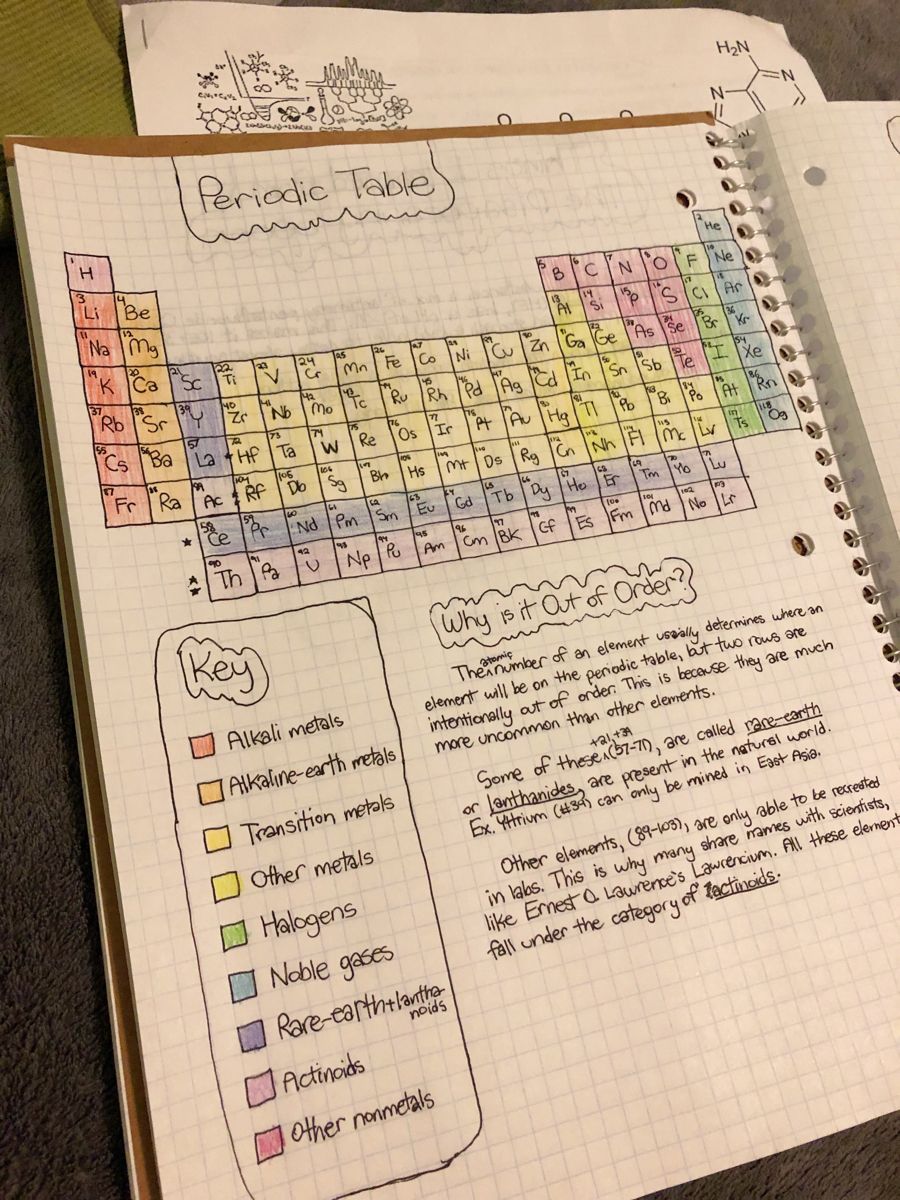 H₂N
N
N
Periodic Table
1 H 2 He
3 Li 4 Be 5 B 6 C 7 N 8 O 9 F 10 Ne
11 Na 12 Mg 13 Al 14 Si 15 P 16 S 17 Cl 18 Ar
19 K 20 Ca 21 Sc 22 Ti 23 V 24 Cr 25 Mn 26 Fe 27 Co 28 Ni 29 Cu 30 Zn Ga 32 Ge 33 As 34 Se 35 Br 36 Kr
37 Rb 38 Sr 39 Y 40 Zr 41 Nb 42 Mo 43 Tc 44 Ru 45 Rh 46 Pd 47 Ag Cd In 50 Sn 51 Sb 52 Te 53 I 54 Xe
55 Cs 56 Ba 57 La 72 Hf 73 Ta 74 W 75 Re 76 Os 77 Ir 78 Pt 79 Au 80 Hg 81 Tl 82 Pb 83 Bi 84 Po 85 At 86 Rn
87 Fr 88 Ra 89 Ac 104 Rf 105 Db 106 Sg 107 Bh 108 Hs 109 Mt 110 Ds 111 Rg 112 Cn Nh 114 Fl 115 Mc 116 Lv 117 Ts 118 Og
★ 58 Ce 59 Pr 60 Nd 61 Pm 62 Sm 63 Eu 64 Gd 65 Tb 66 Dy 67 Ho 68 Er 69 Tm 70 Yb 71 Lu
★★ 90 Th 91 Pa 92 U 93 Np 94 Pu 95 Am 96 Cm 97 BK 98 Cf 99 Es 100 Fm 101 Md 102 No 103 Lr
Key
Alkali metals
Alkaline-earth metals
Transition metals
Other metals
Halogens
Noble gases
Rare-earth+lantha-
noids
Actinoids
Other nonmetals
Why is it Out of Order?
The atomic number of an element usually determines where an
element will be on the periodic table, but two rows are
intentionally out of order. This is because they are much
more uncommon than other elements.
Some of these +21,+39 (57-71), are called rare-earth
or lanthanides, are present in the natural world.
Ex. Yttrium (#39) can only be mined in East Asia.
Other elements, (89-103), are only able to be recreated
in labs. This is why many share names with scientists,
like Ernest O. Lawrence's Lawrencium. All these element
fall under the category of actinoids.